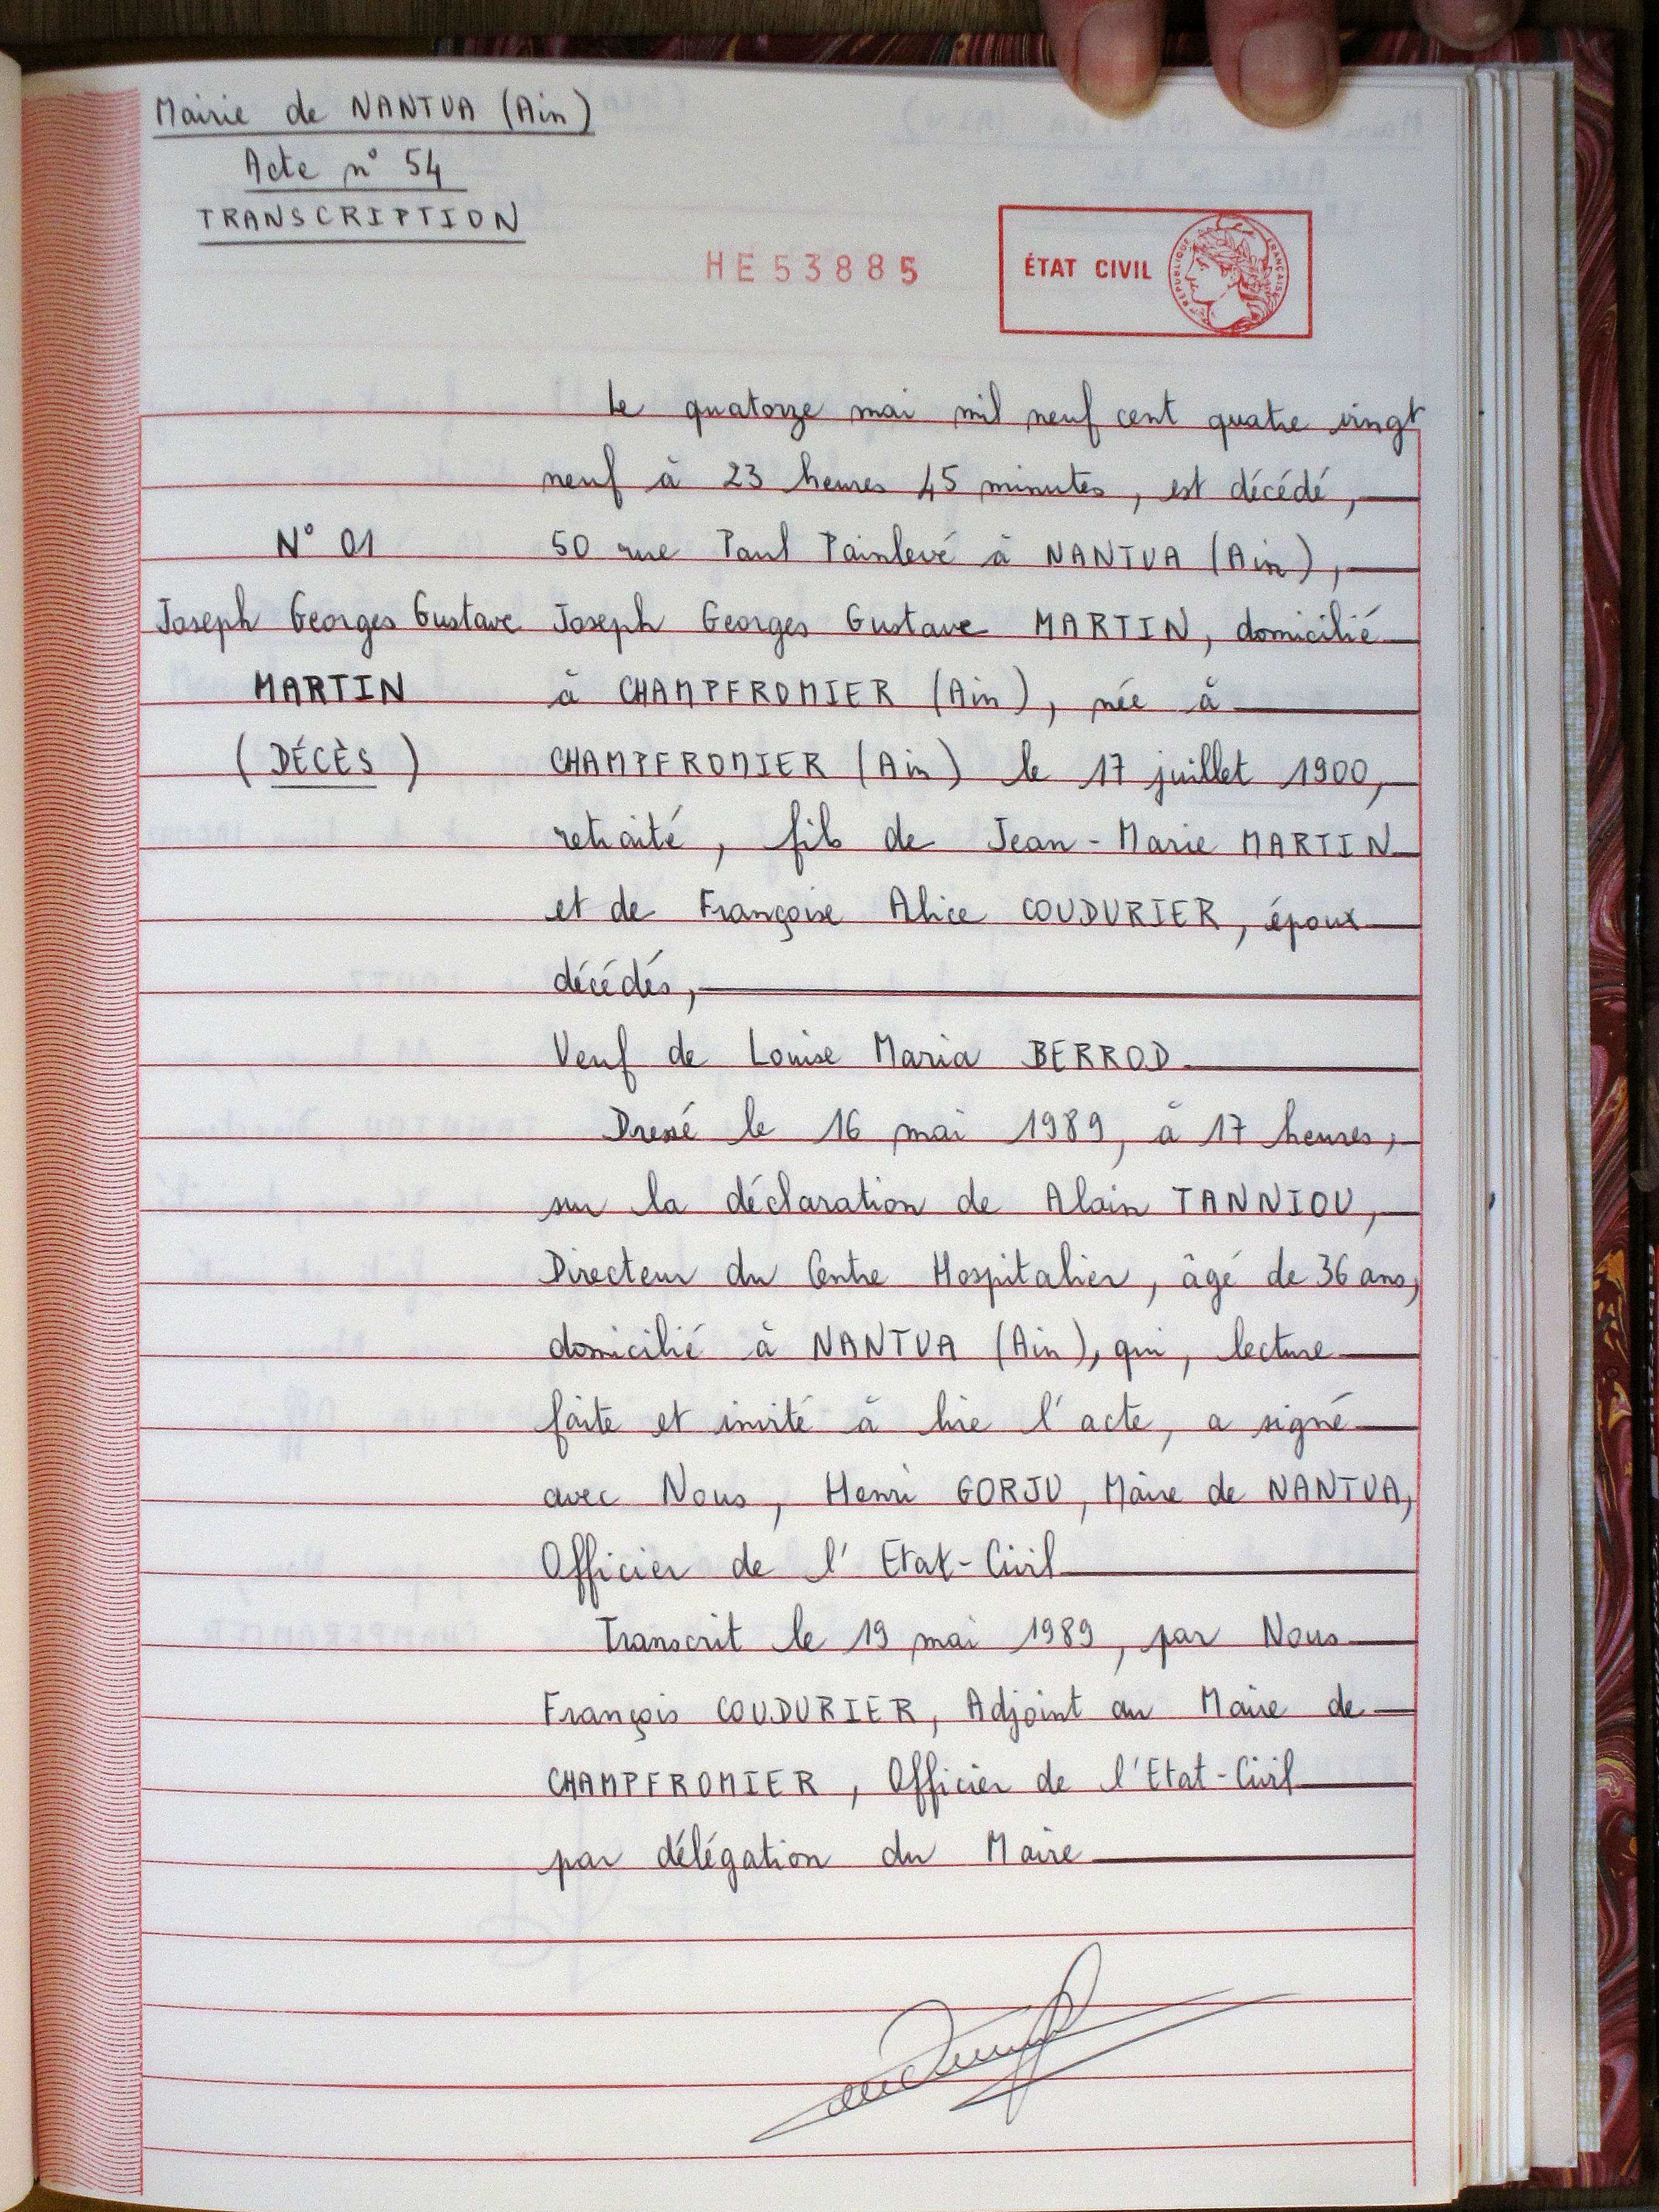 Mairie de NANTUA (Ain)
Acte n° 54
TRANSCRIPTION
HE53885
ÉTAT CIVIL
RÉPUBLIQUE FRANÇAISE
Le quatorze mai mil neuf cent quatre vingt
neuf à 23 heures 45 minutes, est décédé,
N° 01
50 rue Paul Painlevé à NANTUA (Ain),
Joseph Georges Gustave
Joseph Georges Gustave MARTIN, domicilié
MARTIN
à CHAMPFROMIER (Ain), née à
(DÉCÈS)
CHAMPFROMIER (Ain) le 17 juillet 1900,
retraité, fils de Jean-Marie MARTIN
et de Françoise Alice COUDURIER, époux
décédés,
Veuf de Louise Maria BERROD
Dressé le 16 mai 1989, à 17 heures,
sur la déclaration de Alain TANNIOU,
Directeur du Centre Hospitalier, âgé de 36 ans,
domicilié à NANTUA (Ain), qui, lecture
faite et invité à lire l'acte, a signé
avec Nous, Henri GORJU, Maire de NANTUA,
Officier de l'Etat-Civil
Transcrit le 19 mai 1989, par Nous
François COUDURIER, Adjoint au Maire de
CHAMPFROMIER, Officier de l'Etat-Civil
par délégation du Maire